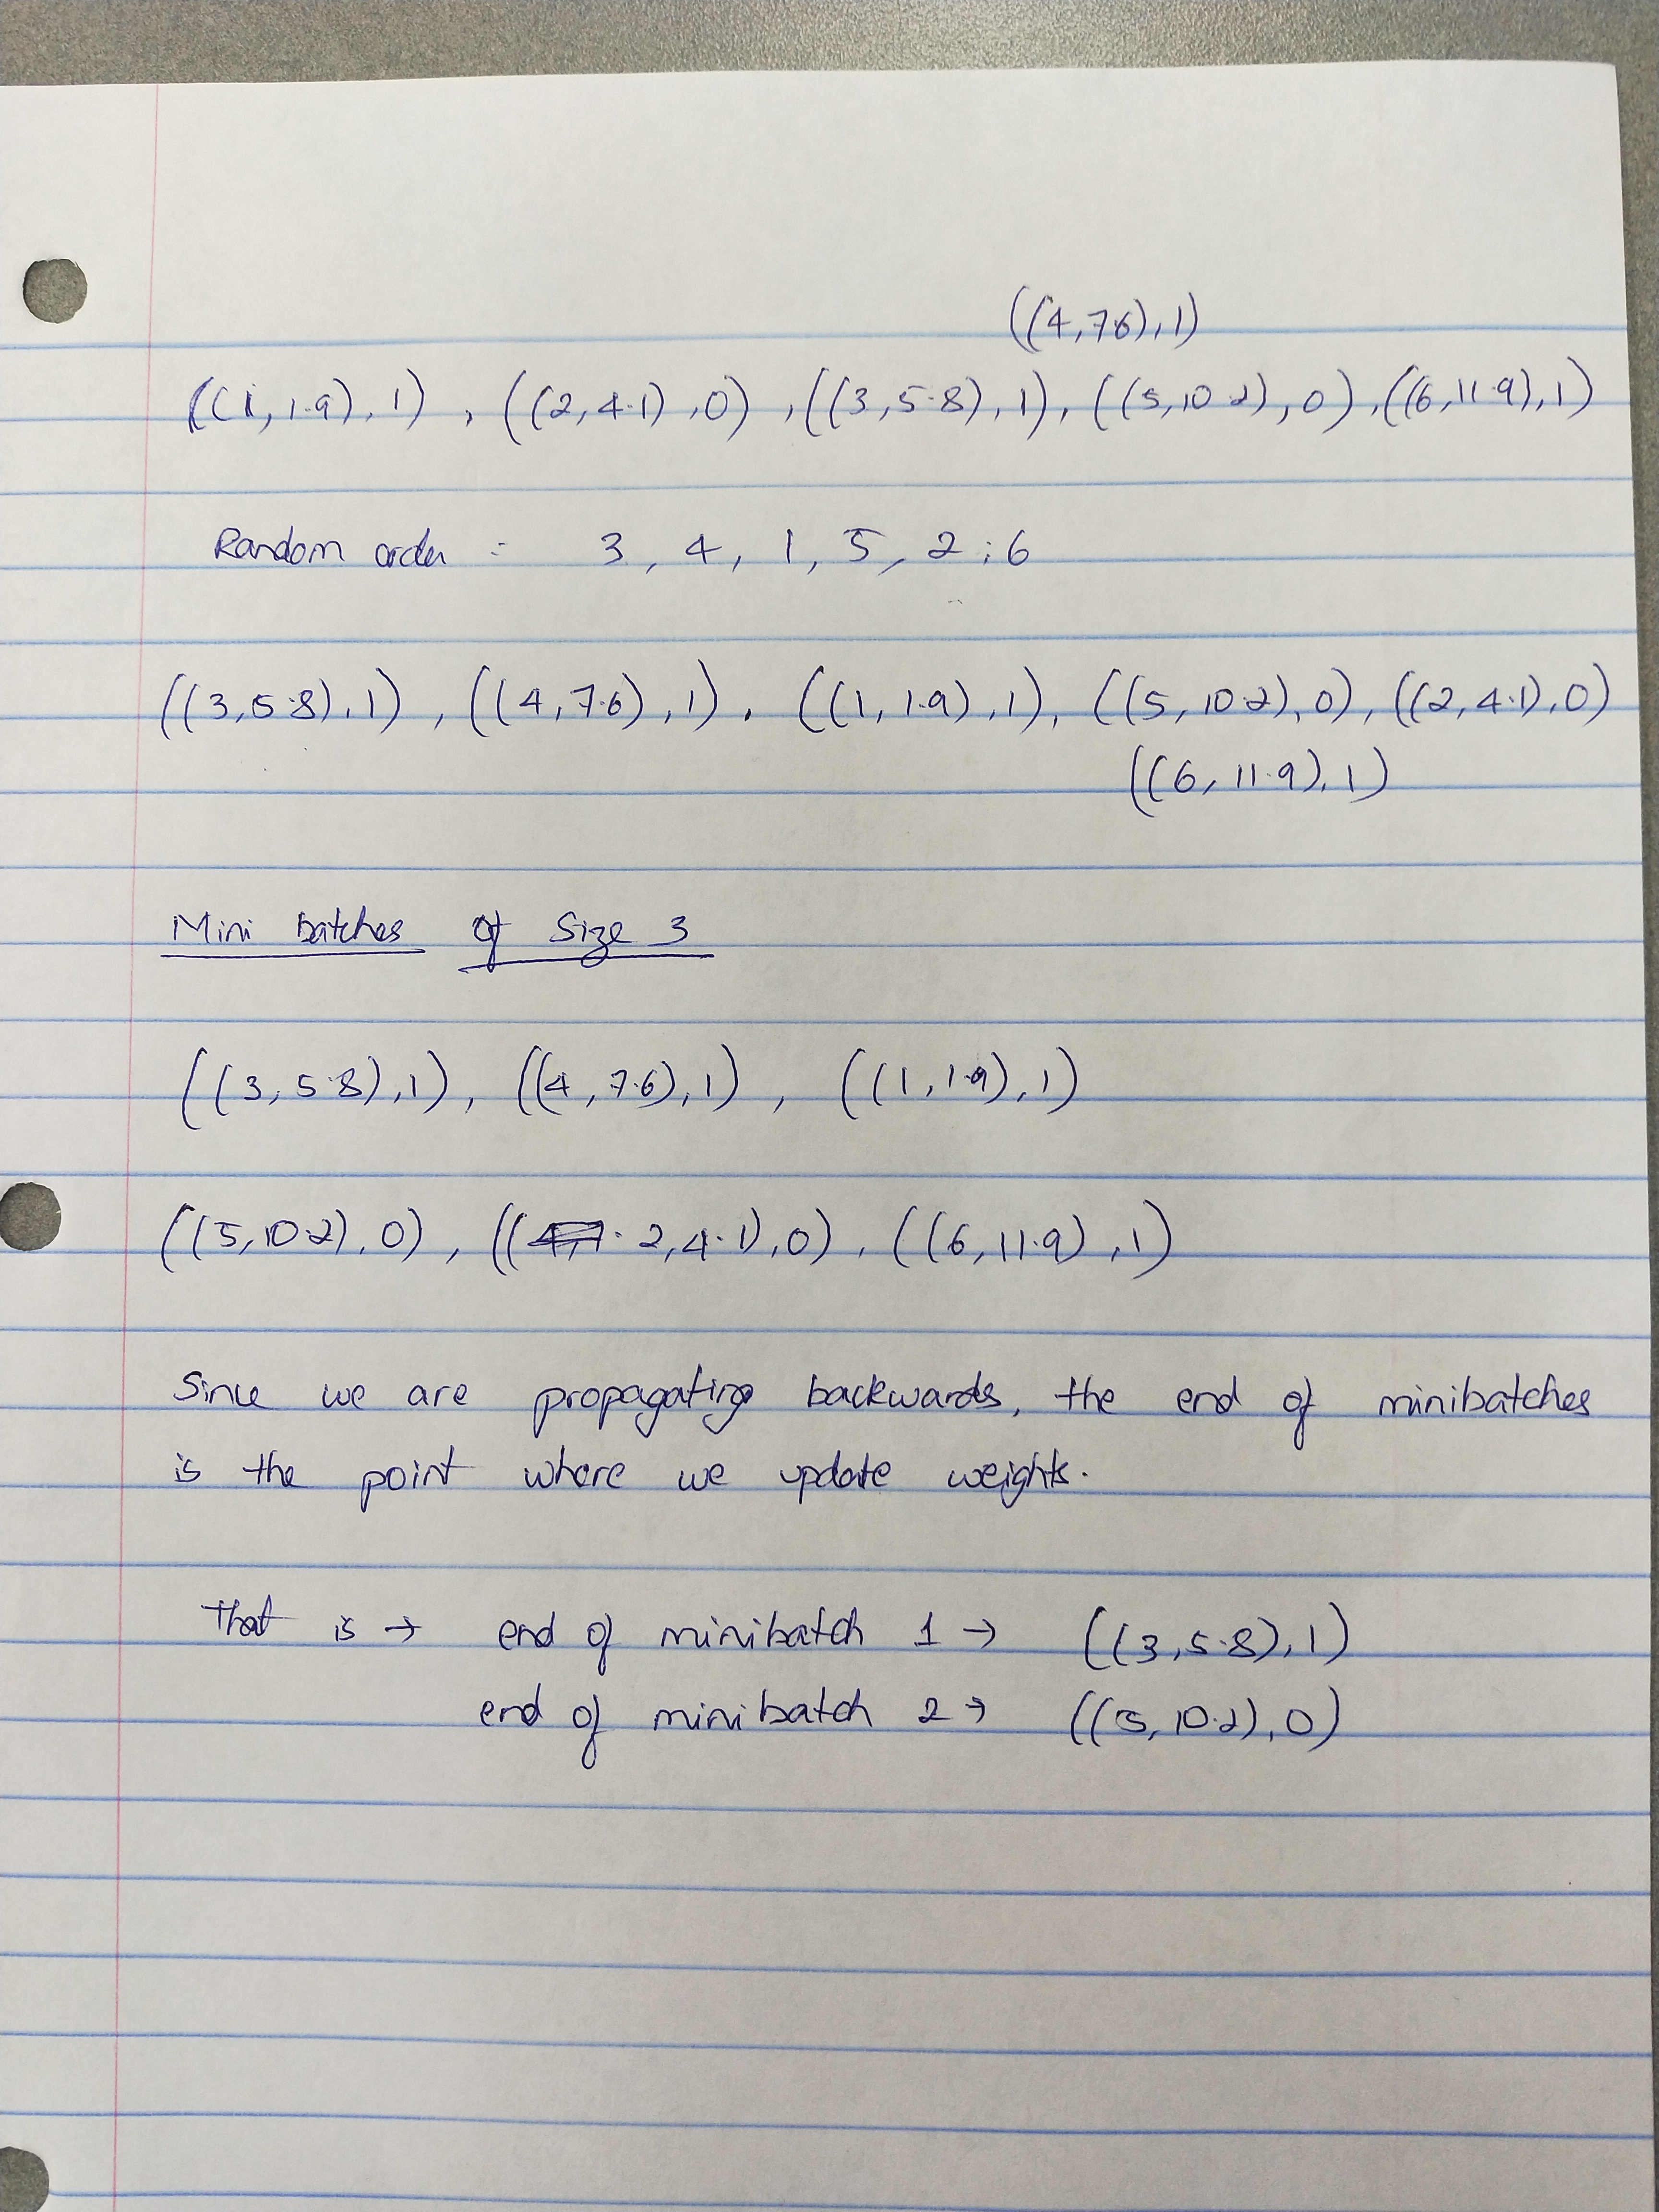 ((4,7.6),1)
((1,1.9),1), ((2,4.1),0), ((3,5.8),1), ((5,10.2),0), ((6,11.9),1)
Random order = 3, 4, 1, 5, 2, 6
((3,5.8),1), ((4,7.6),1), ((1,1.9),1), ((5,10.2),0), ((2,4.1),0)
((6,11.9),1)
Mini batches of Size 3
((3,5.8),1), ((4,7.6),1), ((1,1.9),1)
((5,10.2),0), ((2,4.1),0), ((6,11.9),1)
Since we are propagating backwards, the end of minibatches
is the point where we update weights.
That is → end of minibatch 1 → ((3,5.8),1)
end of minibatch 2 → ((5,10.2),0)